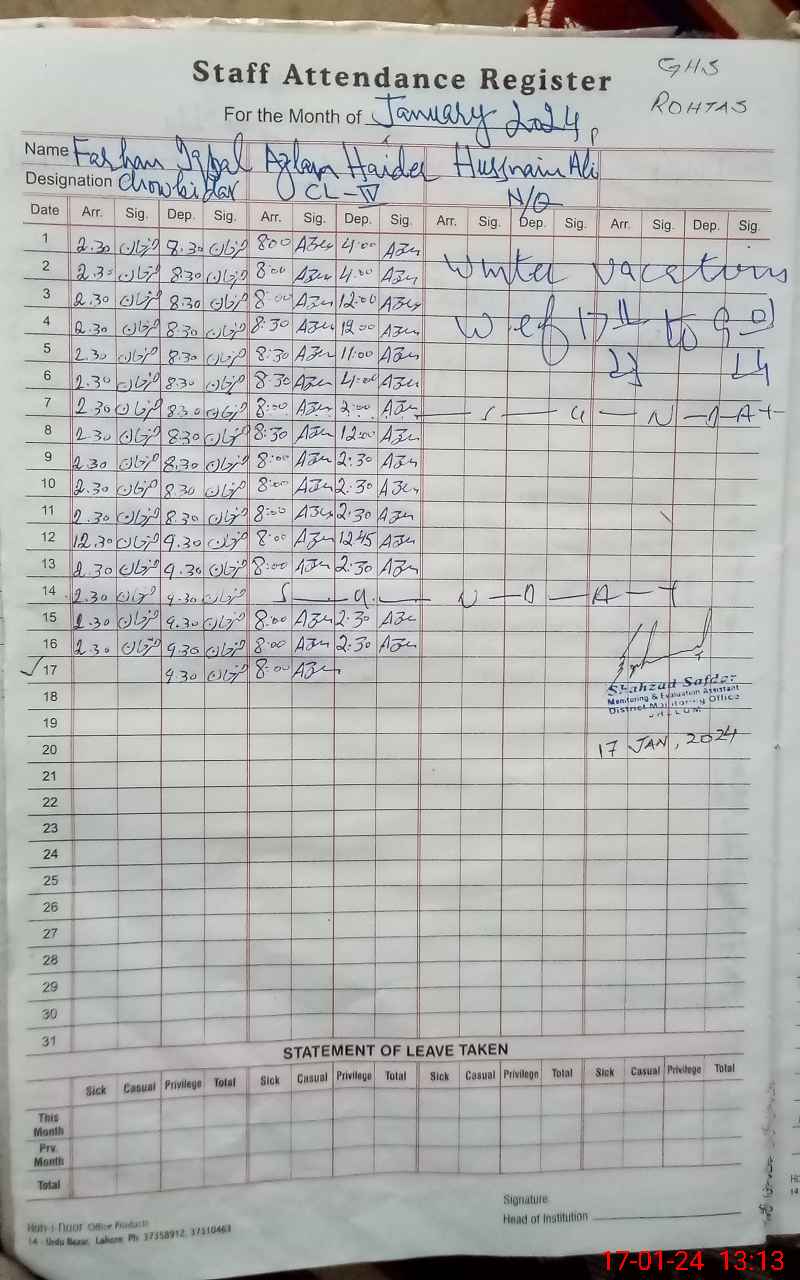 Staff Attendance Register
GHS
ROHTAS
For the Month of January 2024
Name Farhan Iqbal Azlaan Haider Hussnain Ali
Designation Chowkidar CL-IV N/Q
Date Arr. Sig. Dep. Sig. Arr. Sig. Dep. Sig. Arr. Sig. Dep. Sig. Arr. Sig. Dep. Sig.
1 2.30 فرحان 8.30 فرحان 8:00 4:00
2 2.30 فرحان 8.30 فرحان 8:00 4:00 Winter vacations
3 2.30 فرحان 8.30 فرحان 8:00 12:00
4 2.30 فرحان 8.30 فرحان 8:30 12:00 W ef 17 to 9
5 2.30 فرحان 8.30 فرحان 8:30 11:00
6 2.30 فرحان 8.30 فرحان 8:30 4:00
7 2.30 فرحان 8.30 فرحان 8:00 2:00
8 2.30 فرحان 8.30 فرحان 8:30 12:00
9 2.30 فرحان 8.30 فرحان 8:00 2:30
10 2.30 فرحان 8.30 فرحان 8:00 2:30
11 2.30 فرحان 8.30 فرحان 8:00 2:30
12 12.30 فرحان 9.30 فرحان 8:00 1245
13 2.30 فرحان 9.30 فرحان 8:00 2:30
14 2.30 فرحان 9.30 فرحان
15 2.30 فرحان 9.30 فرحان 8:00 2:30
16 2.30 فرحان 9.30 فرحان 8:00 2:30
17 9.30 فرحان 8:00
18
Shahzad Safdar
Monitoring & Evaluation Assistant
District Monitoring Office
JHELUM
19
20 17 JAN, 2024
21
22
23
24
25
26
27
28
29
30
31
STATEMENT OF LEAVE TAKEN
Sick Casual Privilege Total Sick Casual Privilege Total Sick Casual Privilege Total Sick Casual Privilege Total
This Month
Prv. Month
Total
Signature
Head of Institution
Koh-i-Noor Office Products
14 - Urdu Bazar, Lahore. Ph: 37358912, 37310463
17-01-24 13:13